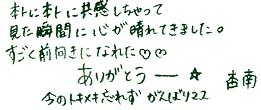 本トに本トに共感しちゃって
見た瞬間に心が晴れてきました。
すごく前向きになれた♡♡
ありがとうー☆ 杏南
今のトキメキ忘れず がんばりマス